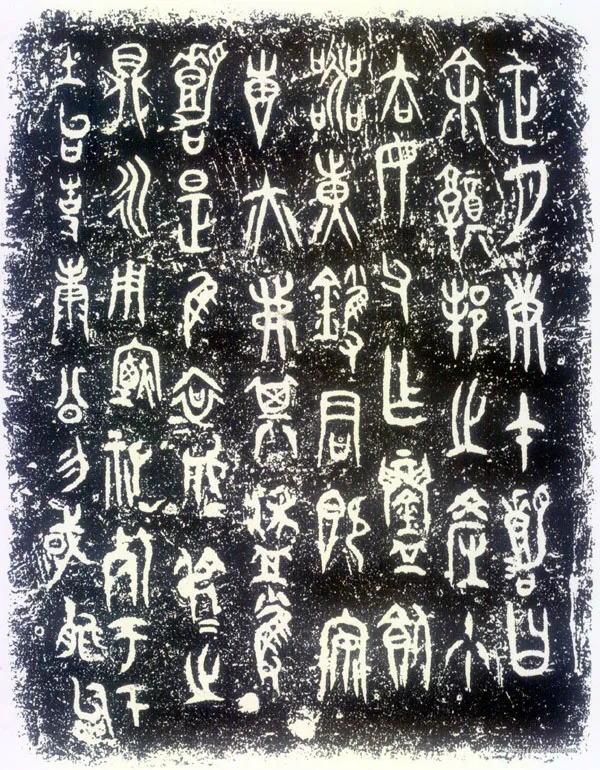 正月庚午嘉曰
余鄭邦之產少
去母父乍鑄飤
器黃鑊君既安
叀亦弗其盄蒦
嘉是隹哀成弔之
鼎永用禋祀死于下
土台事康公勿或能怠